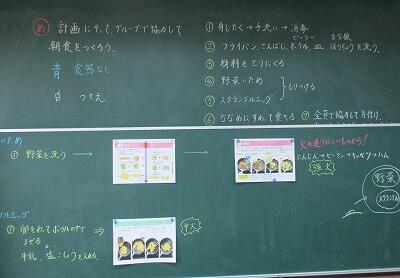 め 計画にそって、グループで協力して
朝食をつくろう。
青 食器など
白 つくえ
① 身じたく → 手洗い → 消毒
ピーラー まな板
② フライパン、さいばし、ボウル、皿 ほうちょうを洗う。
③ 材料をとりにくる
④ 野菜いため
⑤ スクランブルエッグ
もりつける
⑥ ななめにすわって食べる ⑦ 全員で協力して片付け
いため
① 野菜を洗う →
→
火の通りにくいものから!
にんじん→ピーマン→キャベツ→ハム
強火
野菜
スクランブル
ブルエッグ
① 卵をわってボウルの中で
まぜる
牛乳、塩、こしょうを入れる
⇒
中火